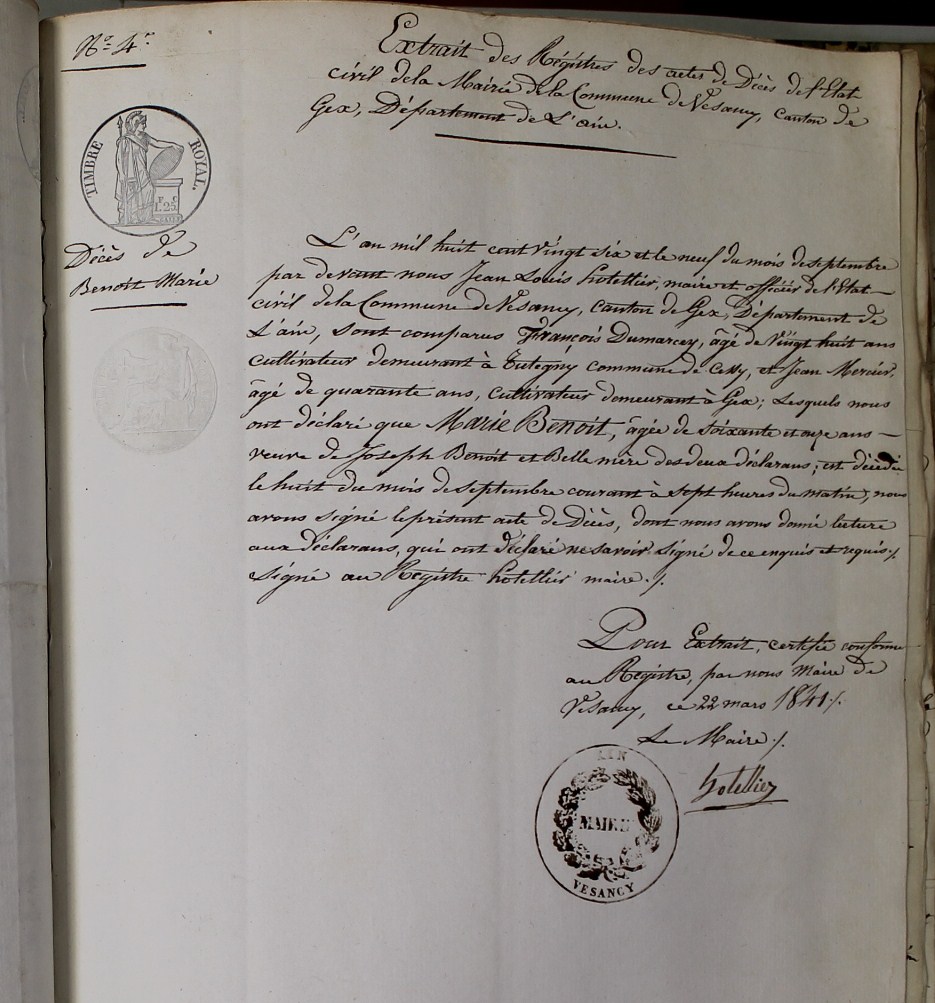 N.° 4.
Extrait des Régistres des actes de Décès de l'Etat
civil de la Mairie de la Commune de Vesancy, canton de
Gex, Département de L'ain.
TIMBRE ROYAL.
F. C
1.25
Décès de
Benoit Marie
L'an mil huit cent vingt six et le neuf du mois de septembre
par devant nous Jean Louis hotellier, maire et officier de l'Etat
civil de la Commune de Vesancy, canton de Gex, Département de
L'ain, sont comparus François Dumarcey, âgé de Vingt huit ans
cultivateur demeurant à Tutegny commune de Cessy, et Jean Mercier,
âgé de quarante ans, cultivateur demeurant à Gex; Lesquels nous
ont déclaré que Marie Benoit, âgée de soixante et onze ans —
veuve de Joseph Benoit et Belle mère des deux déclarans; est décédée
le huit du mois de septembre courant à sept heures du matin, nous
avons signé le présent acte de Décès, dont nous avons donné lecture
aux déclarans, qui ont déclaré ne savoir signé de ce enquis et requis ./.
signé au Registre hotellier maire ./.
Pour Extrait, certifié conforme
au Registre, par nous Maire de
Vesancy, ce 22 mars 1841 ./.
Le Maire ./.
hotellier
AIN
MAIRIE
VESANCY